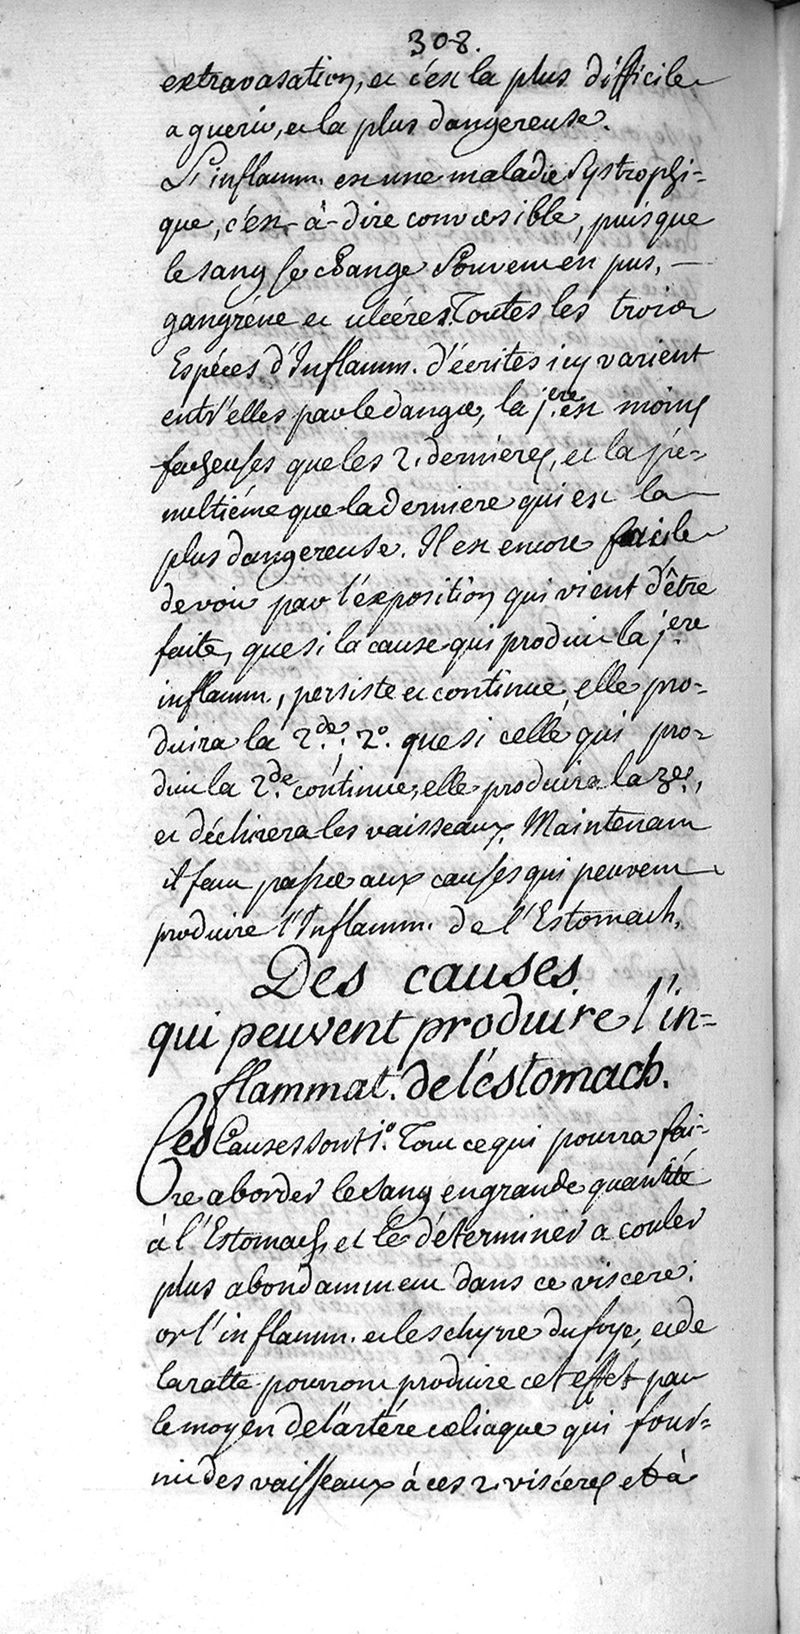 308.
extravasation, et c'est la plus difficile
a guerir, et la plus dangereuse.
L'inflamm. est une maladie Systrophi=
que, c'est-à-dire conversible, puisque
le sang se change souvent en pus, —
gangréne et ulcéres. Toutes les trois
Espéces d'Inflamm. d'écrites icy varient
entr'elles par le danger, la 1.ere est moins
facheuses que les 2. dernieres, et la pé=
nultiéme que la derniere qui est la
plus dangereuse. Il est encore facile
de voir par l'éxposition qui vient d'être
faite, que si la cause qui produit la 1.ere
inflamm, persiste et continue, elle pro=
duira la 2.de; 2.o que si celle qui pro=
duit la 2.de continue, elle produira la 3e.,
et déchirera les vaisseaux. Maintenant
il faut passer aux causes qui peuvent
produire l'Inflamm. de l'Estomach.
Des causes
qui peuvent produire l'in=
flammat. de l'éstomach.
Ces Causes sont 1.o Tout ce qui pourra fai=
re aborder le sang en grande quantité
à l'Estomach, et le déterminer a couler
plus abondamment dans ce viscere.
or l'inflamm. et le schyrre du foye, et de
la ratte pourront produire cet effet par
le moyen de l'artére cœliaque qui four=
nit des vaisseaux à ces 2. viscéres et à